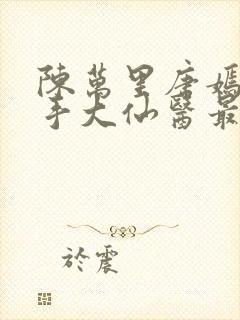 陳萬里唐嫣
手大仙醫最
於震